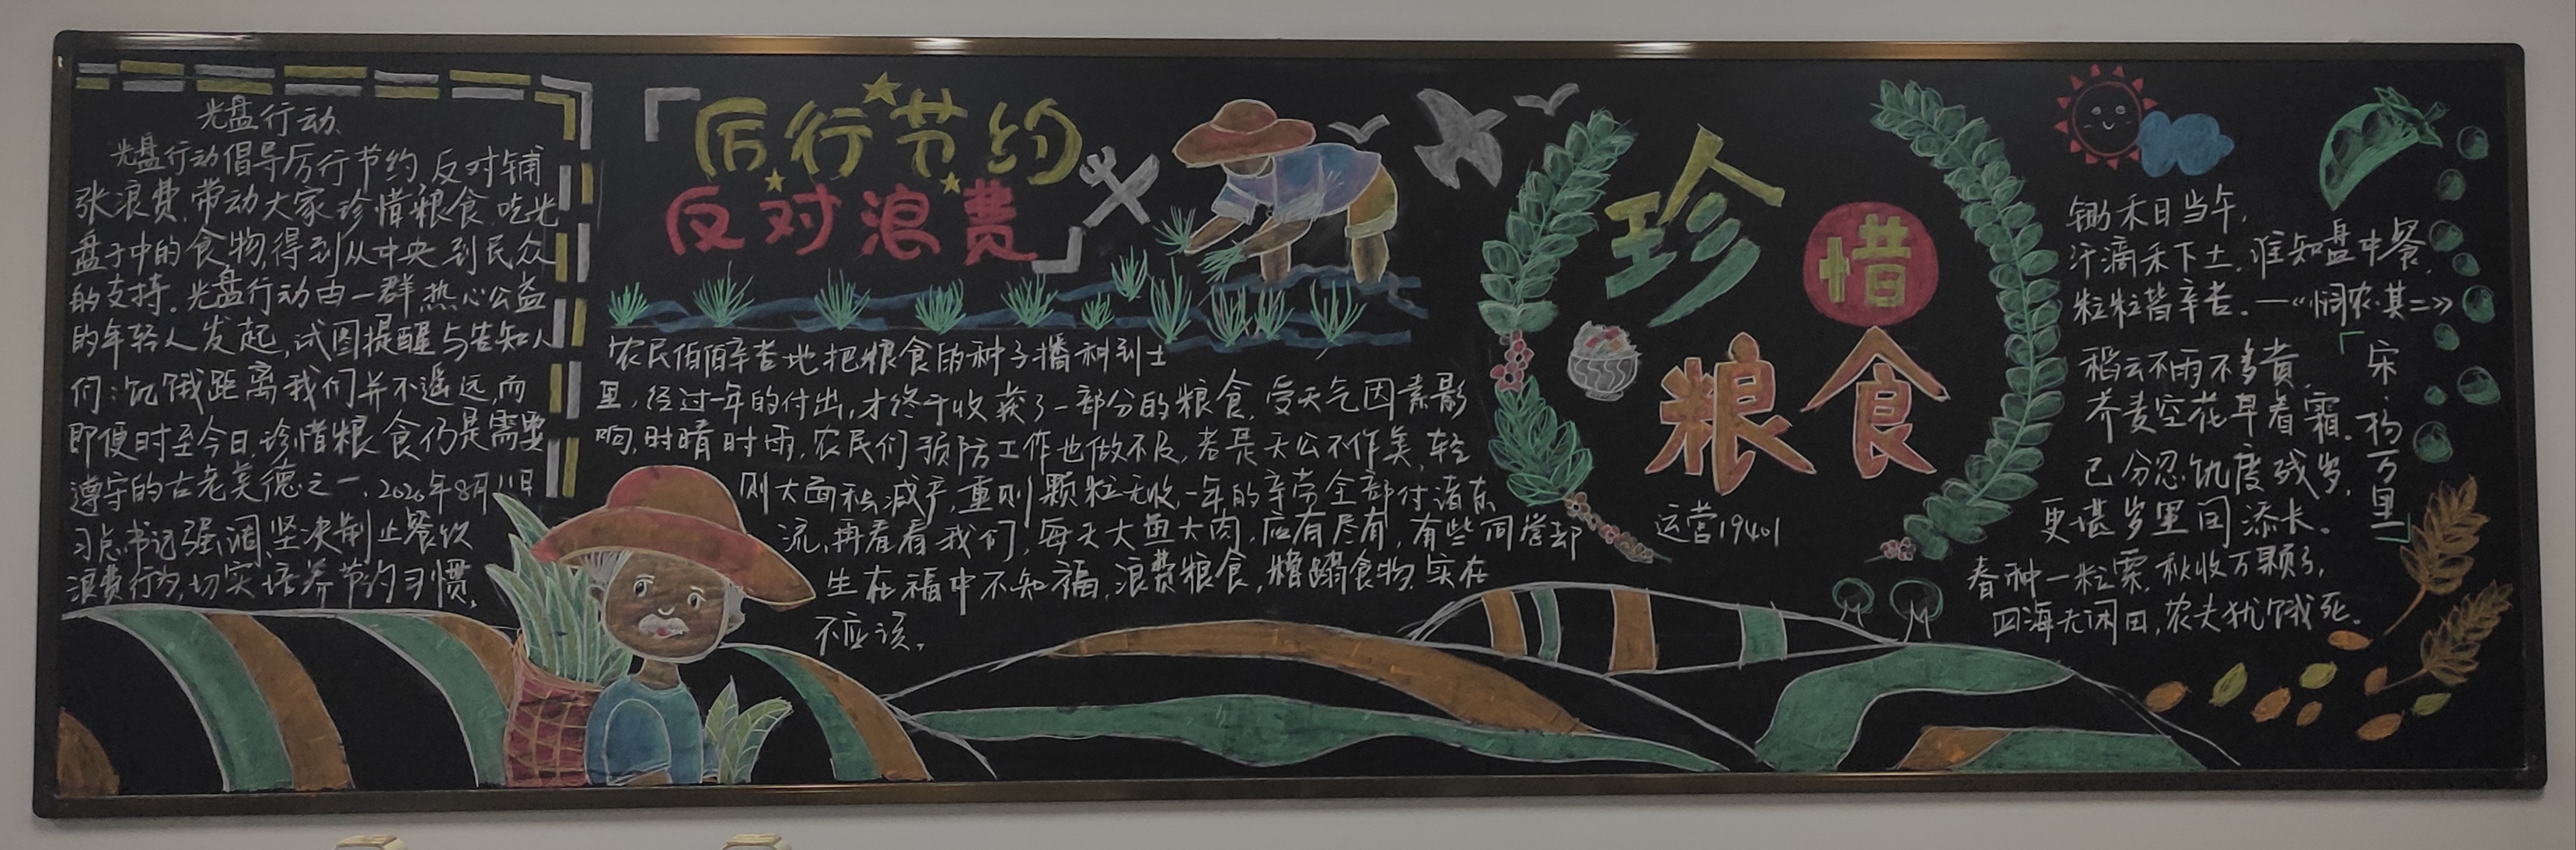 光盘行动
光盘行动倡导厉行节约,反对铺
张浪费,带动大家珍惜粮食,吃光
盘子中的食物,得到从中央到民众
的支持。光盘行动由一群热心公益
的年轻人发起,试图提醒与告知人
们:饥饿距离我们并不遥远,而
即便时至今日,珍惜粮食仍是需要
遵守的古老美德之一,2020年8月11日
习总书记强调,坚决制止餐饮
浪费行为,切实培养节约习惯。
厉行节约
反对浪费
农民伯伯辛苦地把粮食的种子播种到土
里,经过一年的付出,才终于收获了一部分的粮食,受天气因素影
响,时晴时雨,农民们预防工作也做不及,若是天公不作美,轻
则大面积减产,重则颗粒无收,一年的辛劳全部付诸东
流,再看看我们,每天大鱼大肉,应有尽有,有些同学却
生在福中不知福,浪费粮食,糟蹋食物,实在
不应该。
珍惜
粮食
运营19401
锄禾日当午,
汗滴禾下土。谁知盘中餐,
粒粒皆辛苦。—《悯农·其二》
稻云不雨不多黄,
荞麦空花早着霜。
已分忍饥度残岁,
更堪岁里闰添长。
「宋·杨万里」
春种一粒粟,秋收万颗子,
四海无闲田,农夫犹饿死。